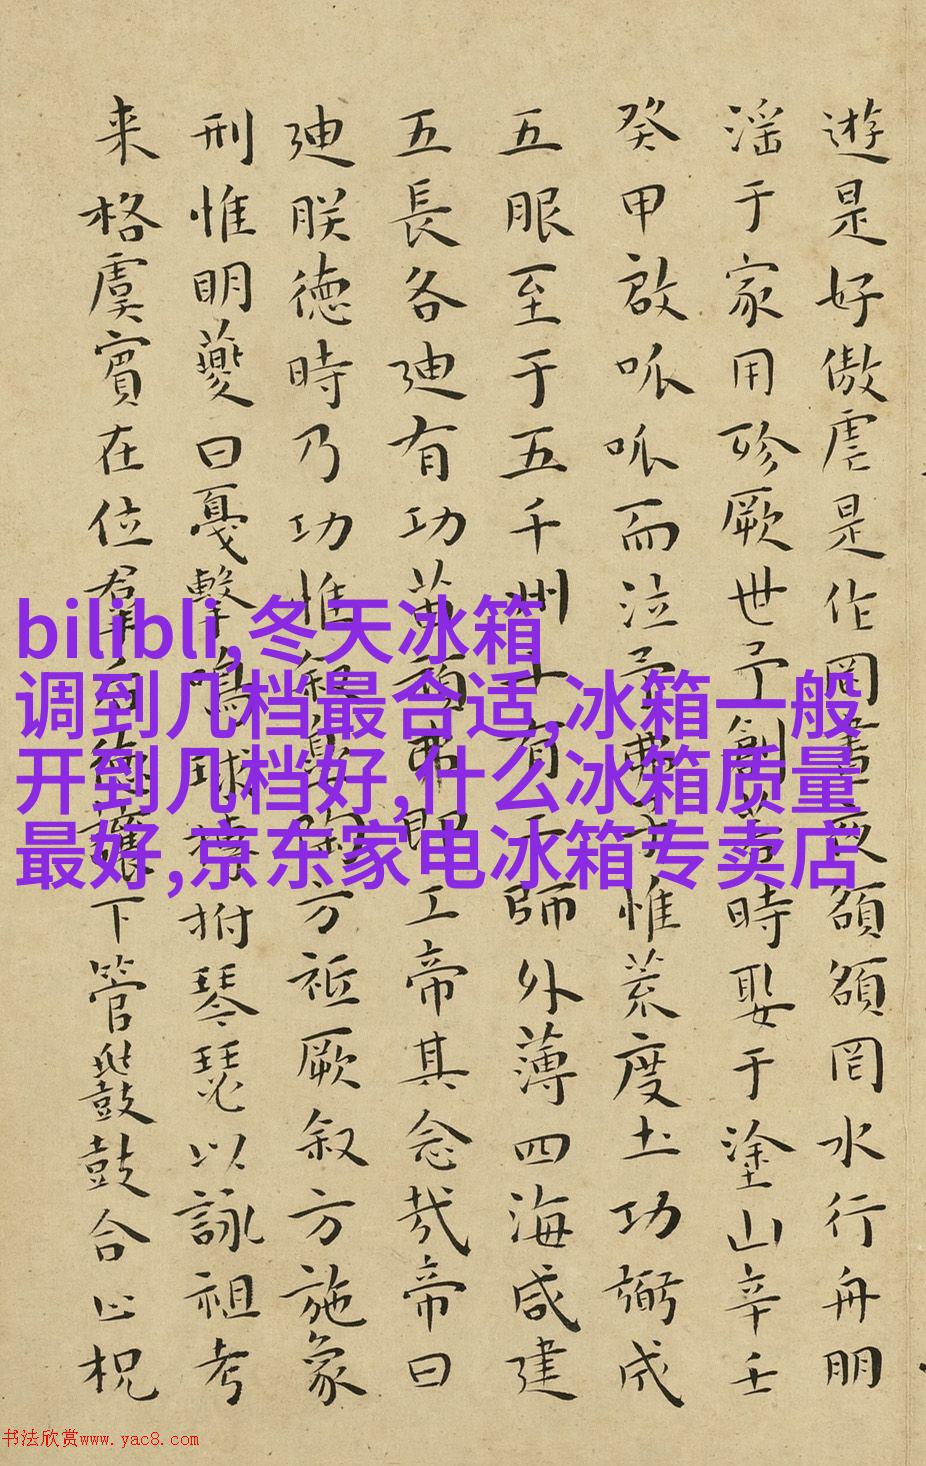 遊是好傲虐是作罔晝夜頟頟罔水行舟朋
滛于家用殄厥世予創若時娶于塗山辛壬
癸甲啟呱呱而泣予弗子惟荒度土功弼成
五服至于五千州十有二師外薄四海咸建
五長各迪有功苗頑弗即工帝其念哉帝曰
迪朕德時乃功惟叙皋陶方祗厥叙方施象
刑惟明夔曰戞擊鳴球搏拊琴瑟以詠祖考
来格虞賓在位羣后德讓下管鼗鼓合止柷
bilibli,冬天冰箱
调到几档最合适,冰箱一般
开到几档好,什么冰箱质量
最好,京东家电冰箱专卖店
书法欣赏www.yac8.com